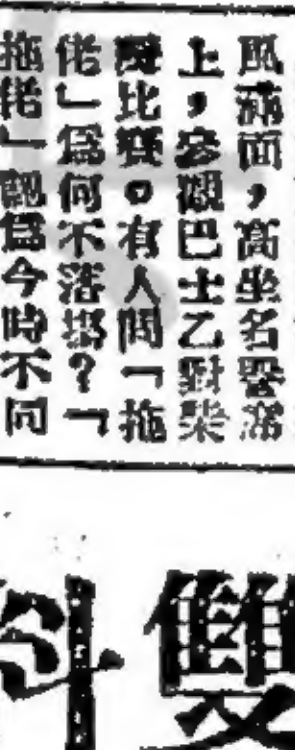 風滿面，高坐名譽席
上，參觀巴士乙對柴
灣比賽。有人問「拖
佬」爲何不落塲？「
拖佬」認爲今時不同
雙
科